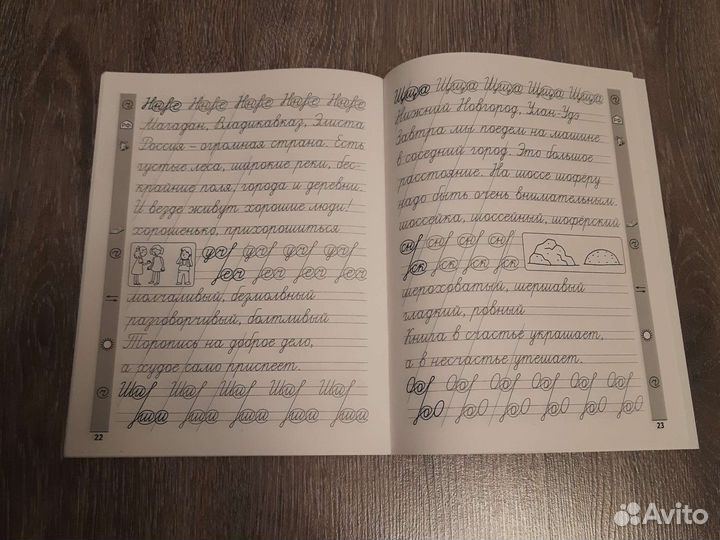 Магадан, Владикавказ, Элиста
Россия – огромная страна. Есть
густые леса, широкие реки, бес-
крайние поля, города и деревни.
И везде живут хорошие люди!
хорошенько, прихорошиться
молчаливый, безмолвный
разговорчивый, болтливый
Торопись на доброе дело,
а худое само приспеет.
22
Нижний Новгород, Улан-Удэ
Завтра мы поедем на машине
в соседний город. Это большое
расстояние. На шоссе шофёру
надо быть очень внимательным.
шоссейка, шоссейный, шофёрский
шероховатый, шершавый
гладкий, ровный
Книга в счастье украшает,
а в несчастье утешает.
23
Avito